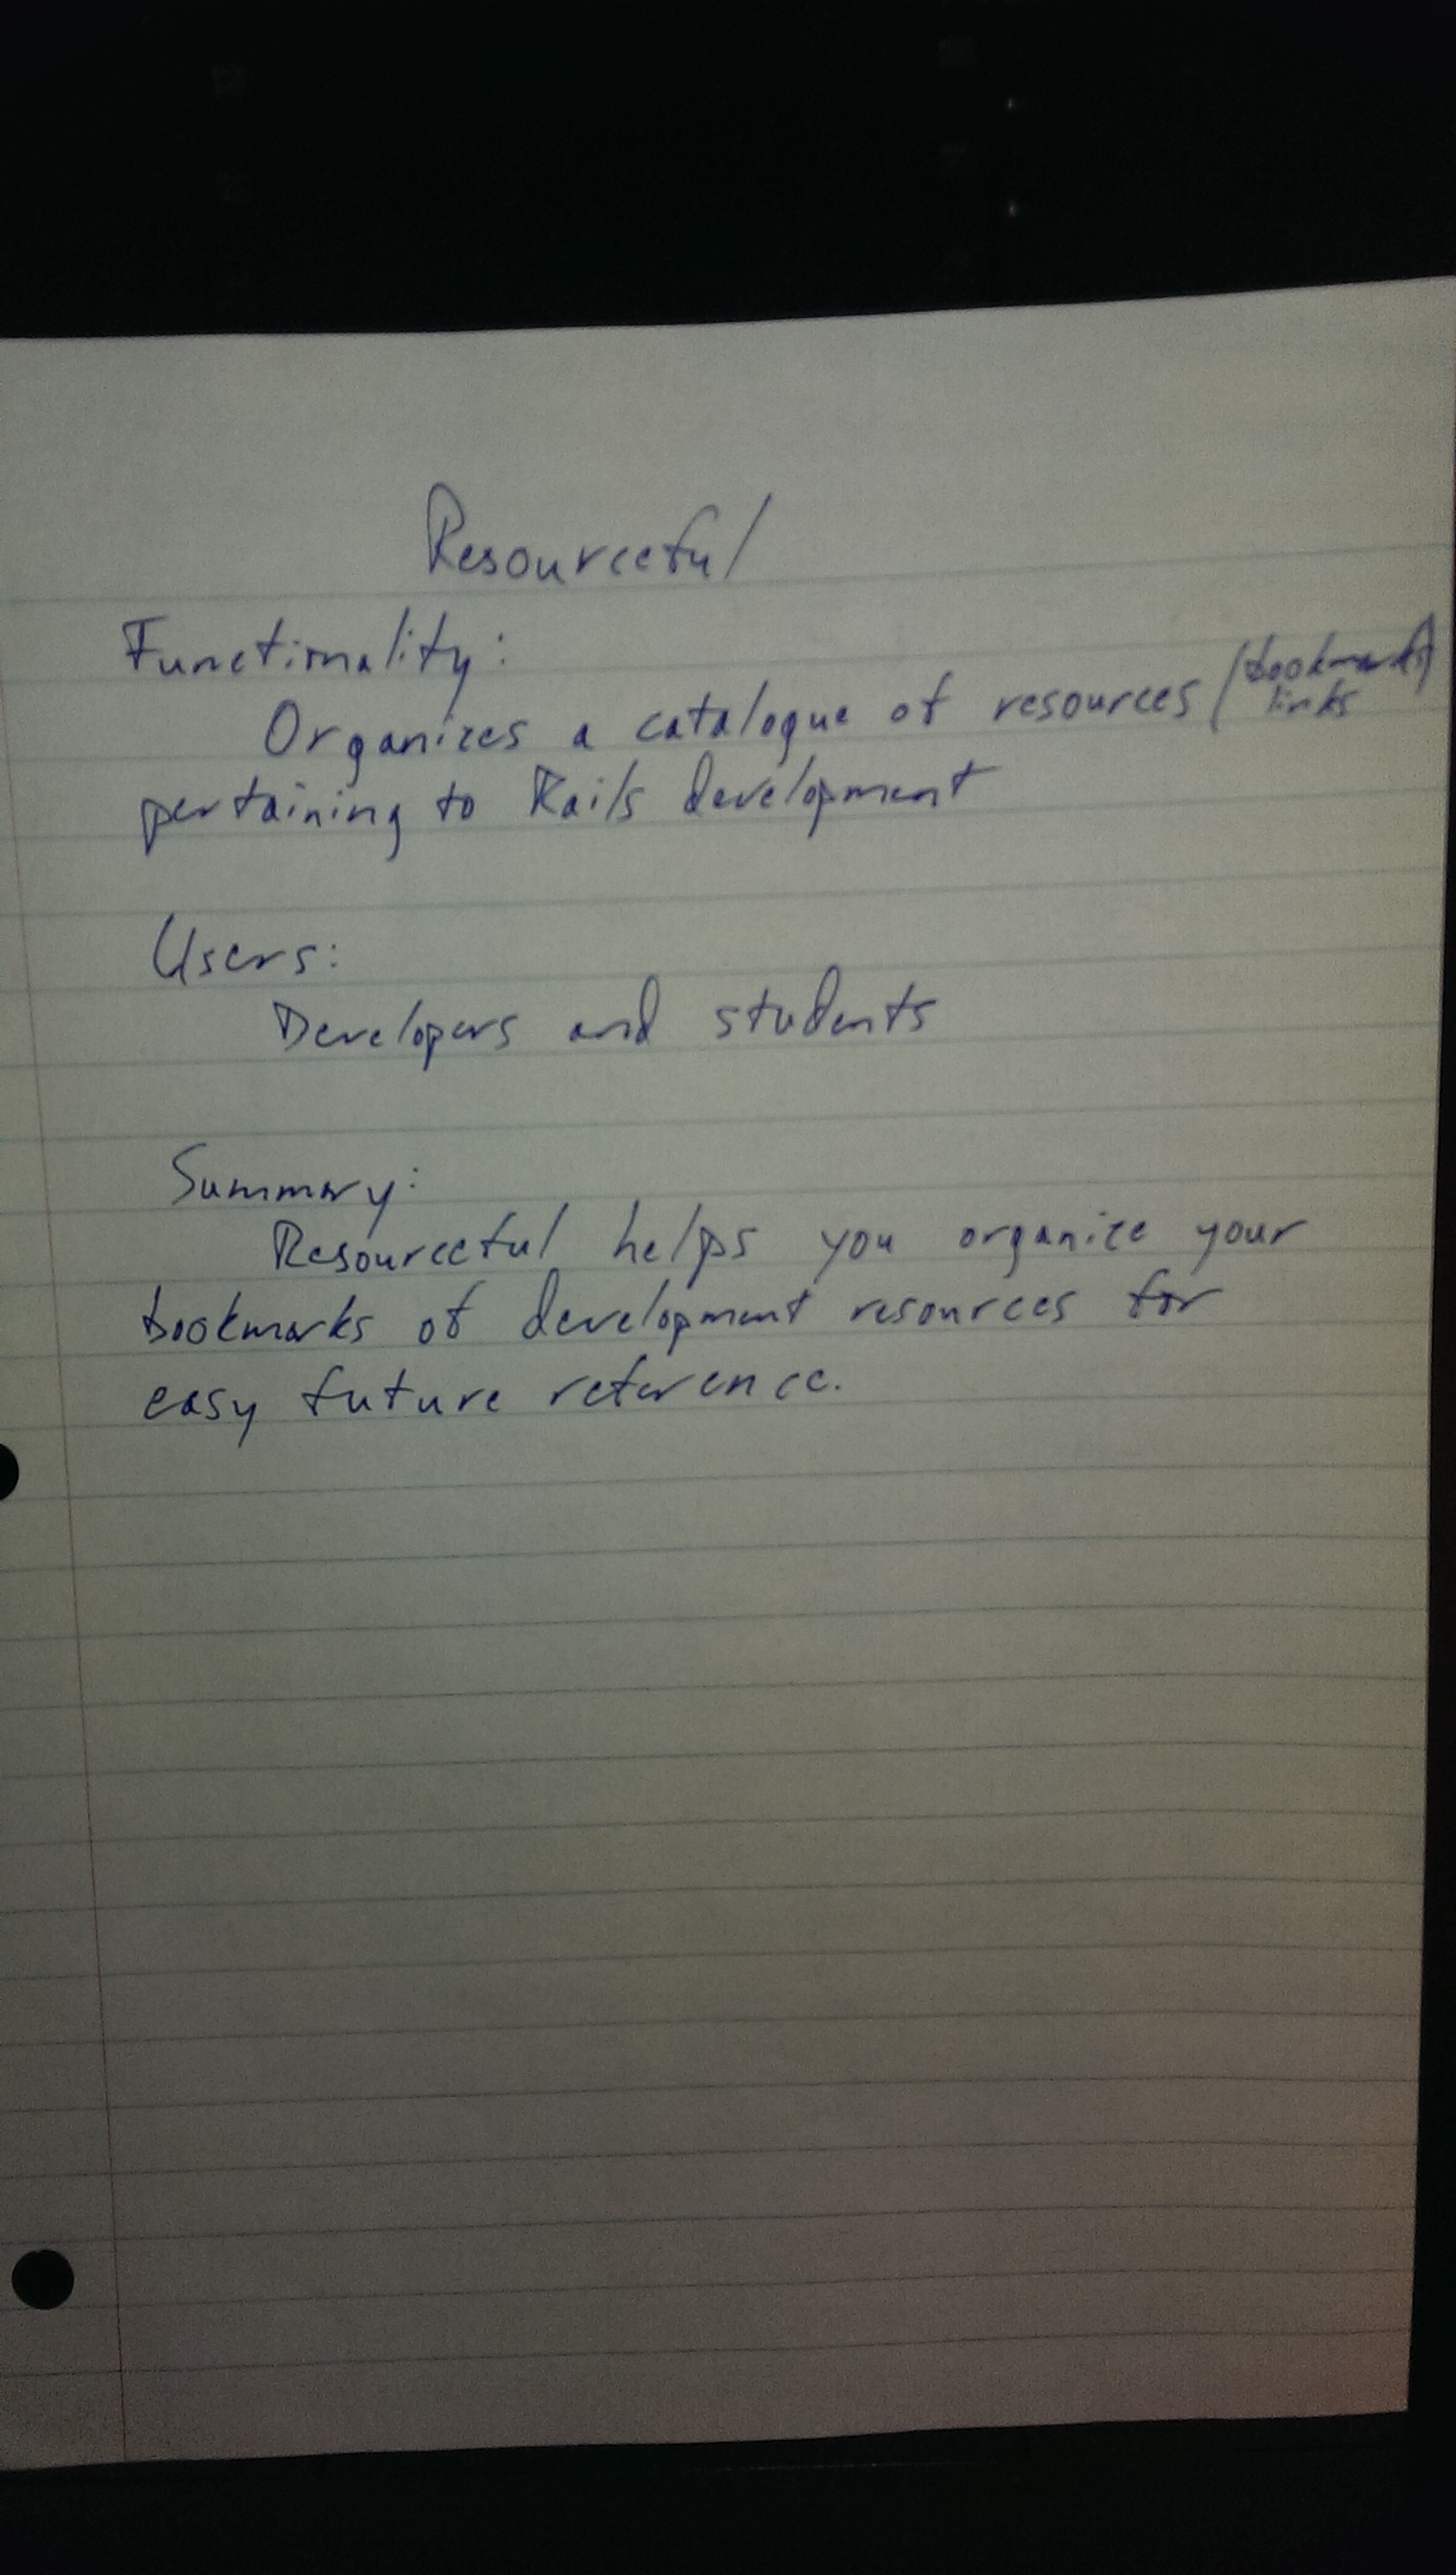 Resourceful
Functionality:
Organizes a catalogue of resources (bookmarks/links)
pertaining to Rails development
Users:
Developers and students
Summary:
Resourceful helps you organize your
bookmarks of development resources for
easy future reference.